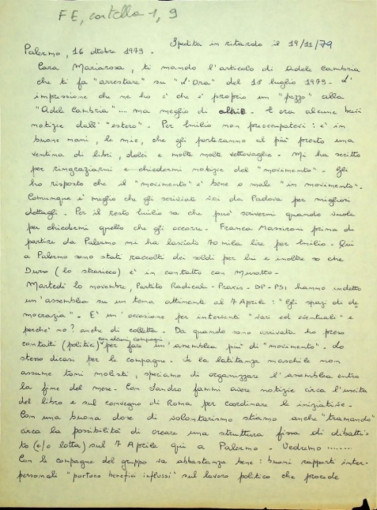 FE, cartella 1, 9
Spedita in ritardo il 19/11/79
Palermo, 16 ottobre 1979.
Cara Mariarosa, ti mando l'articolo di Adele Cambria
che ti fa "arrestare" su "L'Ora" del 18 luglio 1979. L'
impressione che ne ho è che è proprio un "pezzo" alla
"Adele Cambria" - ma meglio di E' ora alcune
notizie dall' "estero". Per Emilio non preoccupatevi: è in
buone mani, le mie, che gli porteranno al più presto una
ventina di libri, dolci e molte molte sottovoglie. Mi ha scritto
per ringraziarmi e chiedermi notizie del "movimento". Gli
ho risposto che il "movimento" è bene o male "in movimento".
Comunque è meglio che gli scriviate voi da Padova per migliori
dettagli. Per il resto Emilio sa che può scrivermi quando vuole
per chiedermi quello che gli occorre. Franca prima di
partire da Palermo mi ha lasciato 70 mila lire per Emilio. Qui
a Palermo sono stati raccolti dei soldi per lui e inoltre so che
Duro (lo ) è in contatto con
Martedì 20 novembre, Partito Radicale - - DP - PSI hanno indetto
un'assemblea su un tema attinente al 7 Aprile: "Gli spazi di de
mocrazia". E' un'occasione per interventi "vari ed eventuali" e
perché no? anche di colletta. Da quando sono arrivata ho preso
contatti (politici) con alcuni compagni per fare un'assemblea più "di movimento". Lo
stesso dicasi per le compagne. Se la latitanza non
assume toni molesti, speriamo di organizzare l'assemblea entro
la fine del mese. Con Sandro fammi avere notizie circa l'uscita
del libro e sul convegno di Roma per coordinare le iniziative.
Con una buona dose di volontarismo stiamo anche "tramando"
circa la possibilità di creare una struttura fissa di dibatti-
to (e/o lotta) sul 7 Aprile qui a Palermo. Vedremo.......
Con le compagne del gruppo va abbastanza bene: buoni rapporti inter-
personali "portano benefici influssi" sul lavoro politico che procede